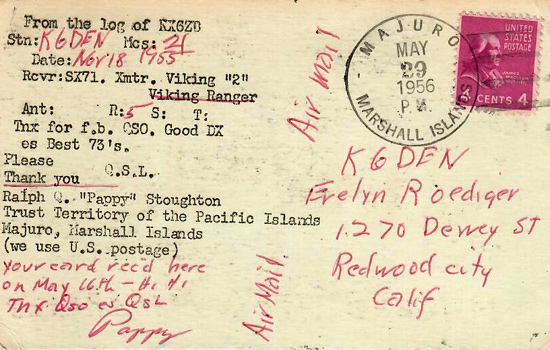 From the log of KX6ZB
Stn: K6DEN Mcs: 21
Date: Nov 18 1955
Rcvr:SX71. Xmtr. Viking "2"
Viking Ranger
Ant: R:5 S: T:
Tnx for f.b. QSO. Good DX
es Best 73's.
Please
Q.S.L.
Thank you
Ralph Q. "Pappy" Stoughton
Trust Territory of the Pacific Islands
Majuro, Marshall Islands
(we use U.S. postage)
your card rec'd here
on May 16th - Hi Hi
Thx Qso es QsL
Pappy
Air Mail
Air Mail
MAJURO
MAY
29
1956
P.M.
MARSHALL ISLAN
UNITED
STATES
POSTAGE
JAMES
MADISON
CENTS 4
K6DEN
Evelyn Roediger
1270 Dewey St
Redwood city
Calif